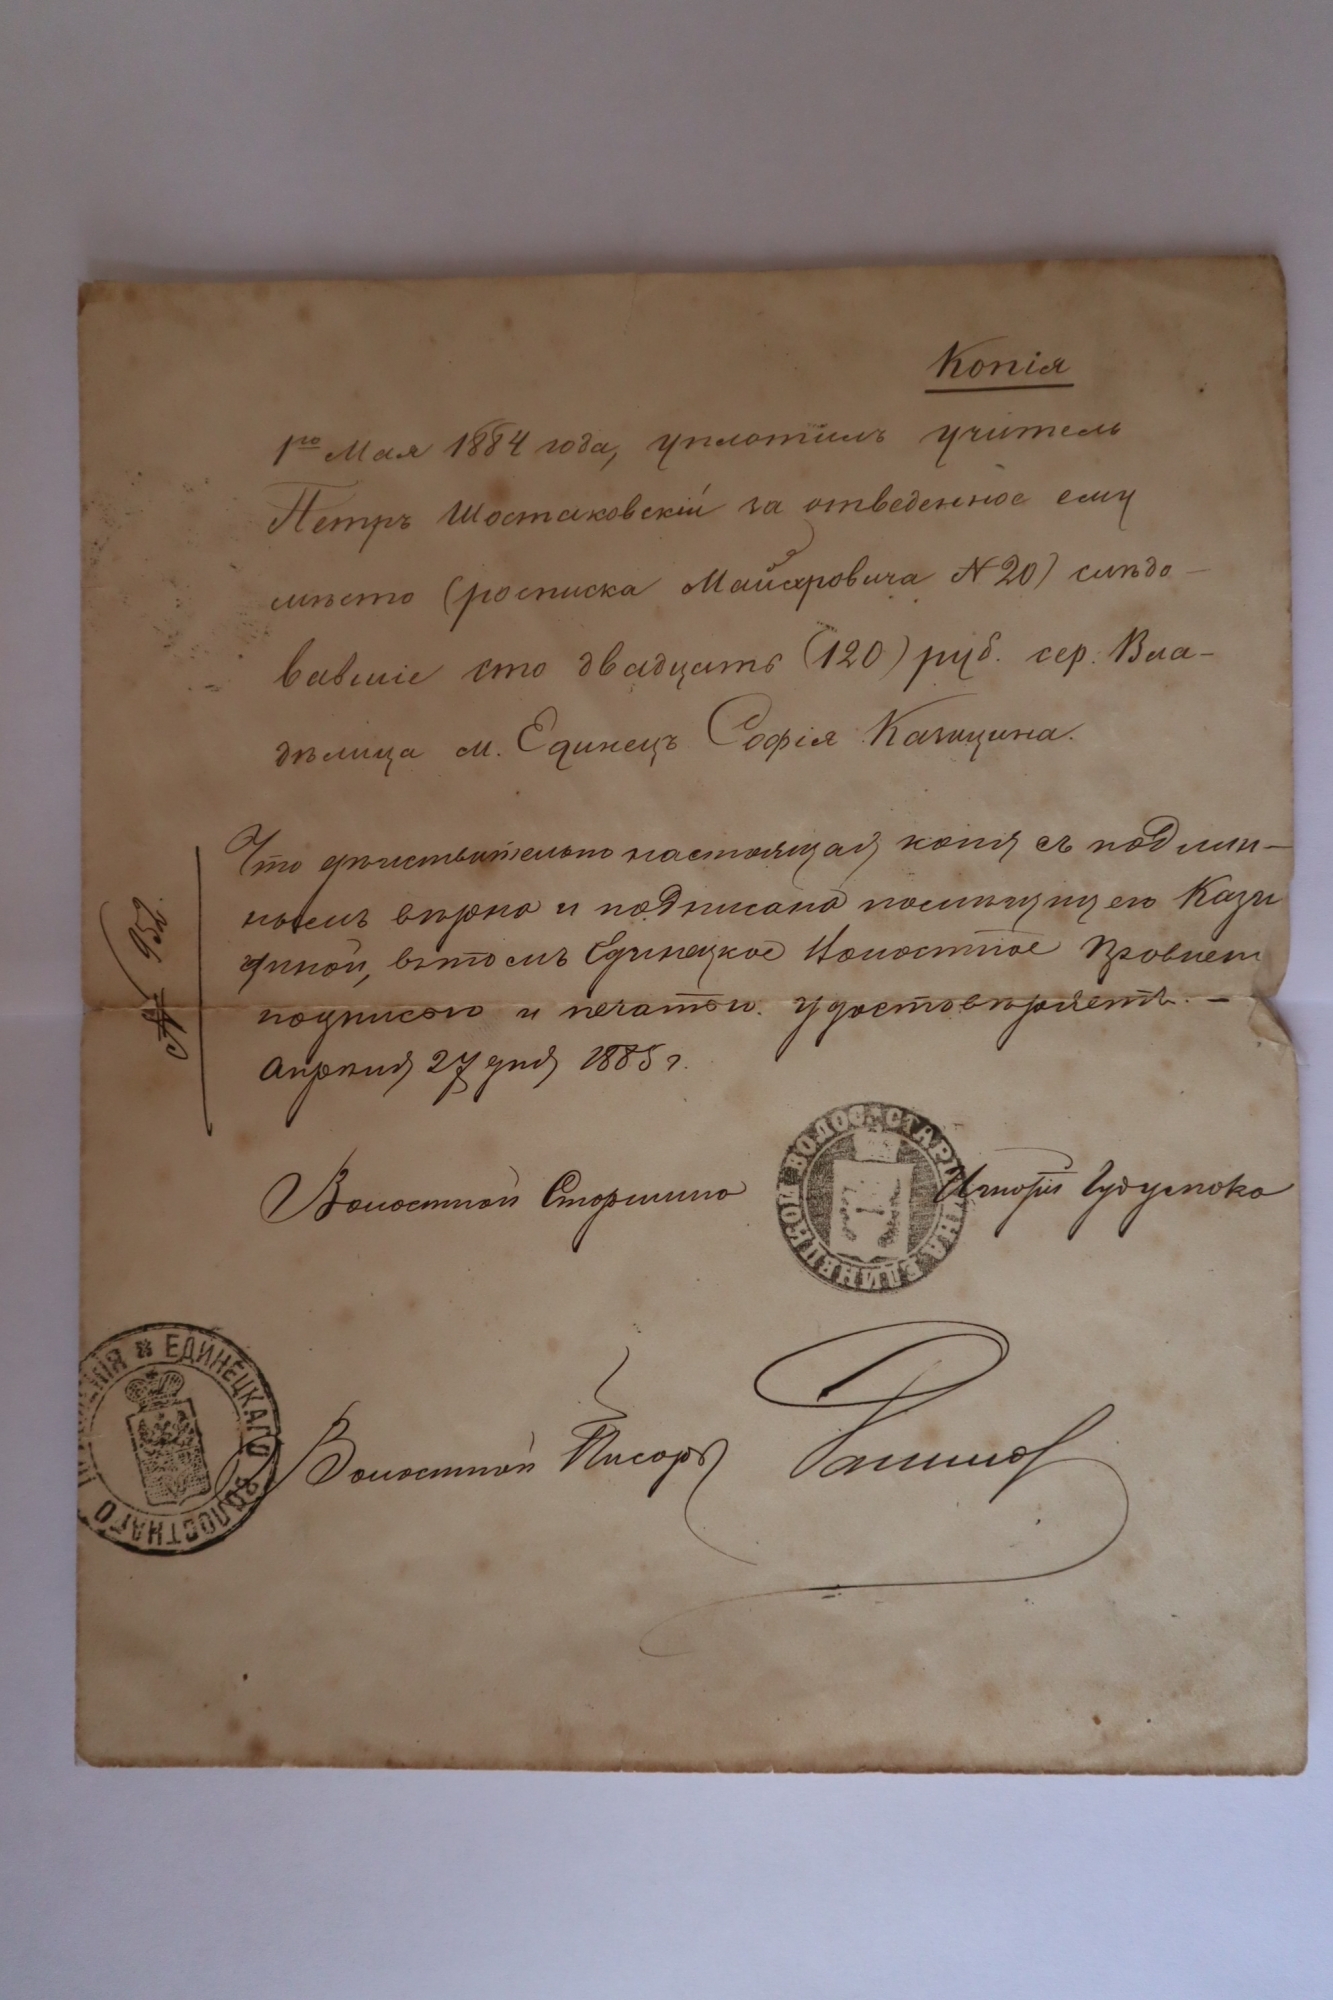 Копія
1го Мая 1884 года, уплотилъ учитель
Петръ Шостаковскій за отведенное ему
мѣсто (росписка Майяровича № 20) слѣдо-
вавшіе сто двадцать (120) руб. сер. Вла-
дѣлица м. Единецъ Софія Казицина.
Что дѣйствительно настоящая копія съ подлин-
нымъ вѣрна и подписана помѣщицею Кази
циной, въ томъ Единецкое Волостное Правлен
подписью и печатью удостовѣряетъ. —
Апрѣля 27 дня 1885 г.
№ 952.
Волостной Старшина
ЕДИНЕЦКОЙ ВОЛОС. СТАРШИНА
ЕДИНЕЦКАГО ВОЛОСТНАГО ПРАВЛЕНІЯ
Волостной Писарь